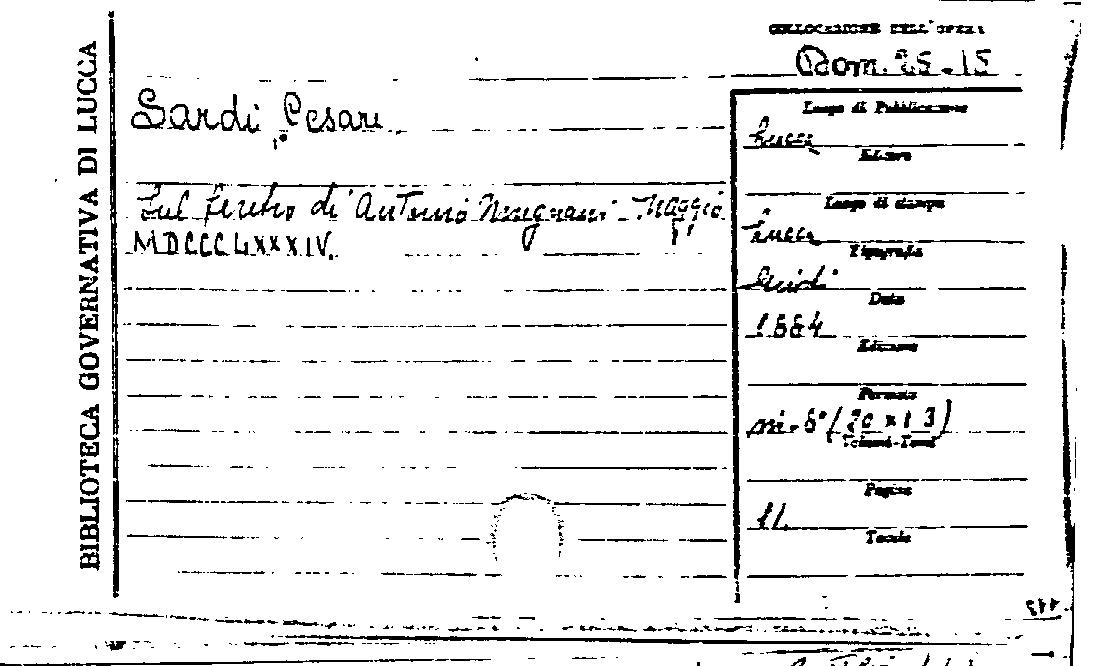 BIBLIOTECA GOVERNATIVA DI LUCCA
COLLOCAZIONE DELL'OPERA
Dom. 25-15
Sardi, Cesare
Sul feretro di Antonio Mugnani - Maggio
MDCCCLXXXIV.
Luogo di Pubblicazione
Lucca
Editore
Luogo di stampa
Lucca
Tipografia
Giusti
Data
1884
Edizione
Formato
in-8° (20 x 13)
Volumi-Tomi
Pagine
11.
Tavole